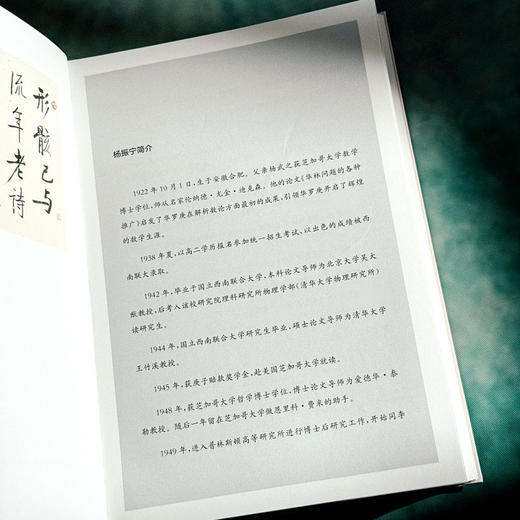 形骸已与
流年老诗
杨振宁简介
1922 年 10 月 1 日,生于安徽合肥。父亲杨武之获芝加哥大学数学
博士学位,师从名家伦纳德·尤金·迪克森。他的论文《华林问题的各种
推广》启发了华罗庚在解析数论方面最初的成果,引领华罗庚开启了辉煌
的数学生涯。
1938 年夏,以高二学历报名参加统一招生考试,以出色的成绩被西
南联大录取。
1942 年,毕业于国立西南联合大学,本科论文导师为北京大学吴大
猷教授,后考入该校研究院理科研究所物理学部(清华大学物理研究所)
读研究生。
1944 年,国立西南联合大学研究生毕业,硕士论文导师为清华大学
王竹溪教授。
1945 年,获庚子赔款奖学金,赴美国芝加哥大学就读。
1948 年,获芝加哥大学哲学博士学位,博士论文导师为爱德华·泰
勒教授。随后一年留在芝加哥大学做恩里科·费米的助手。
1949 年,进入普林斯顿高等研究所进行博士后研究工作,开始同李